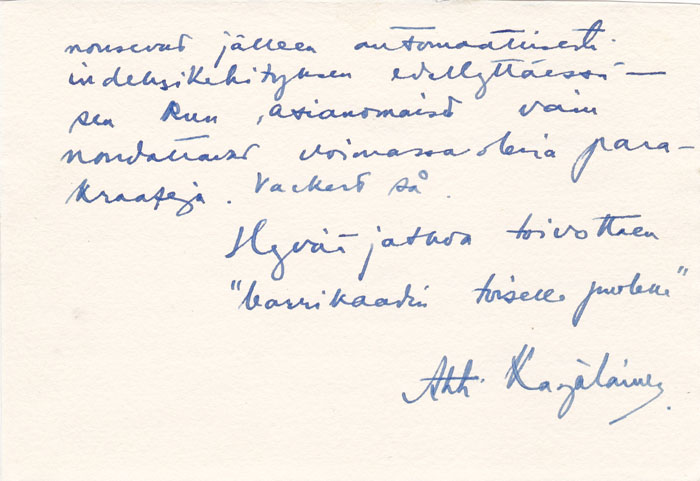 nousevat jälleen automaattisesti
indeksikehityksen edellyttäessä —
sen kun asianomaiset vain
noudattavat voimassa olevia para-
kraafeja. Vackert så.
Hyvää jatkoa toivottaen
"barrikaadin toiselle puolelle"
Ahti Karjalainen